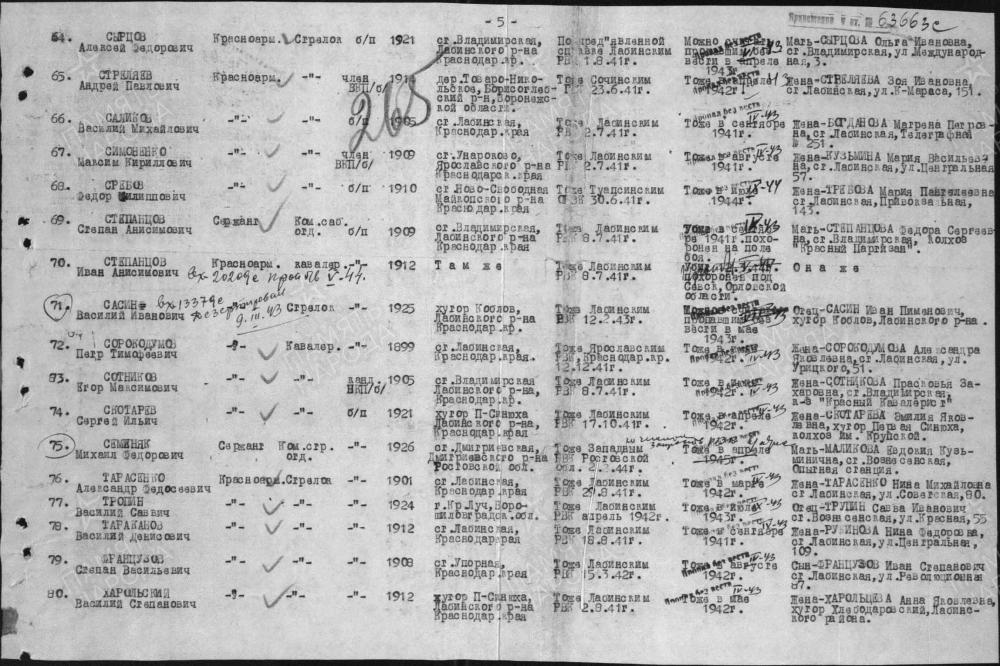 - 5 -
63663с
64. СЫРЦОВ Красноарм. Стрелок б/п 1921 ст.Владимирская, По пред"явленной Можно Мать-СЫРЦОВА Ольга Ивановна,
Алексей Федорович Лабинского р-на справке Лабинским ст.Владимирская, ул.Международ-
Краснодар.края РВК 1.8.41г. вести в апреле ная, 3.
1943г.
65. СТРЕЛЯЕВ Красноарм. -"- член 1914 дер.Товаро-Нико- Тоже Сочинским Тоже в апреле Жена-СТРЕЛЯЕВА Зоя Ивановна,
Андрей Павлович ВКП/б/ льское,Борисоглеб- РВК 23.6.41г. ст.Лабинская, ул.К-Маркса, 151.
ский р-н,Воронежс-
кой области.
265
66. САЛИКОВ -"- -"- б/п 1905 ст.Лабинская, Тоже Лабинским Тоже в сентябре Жена-БОГДАНОВА Матрена Петров-
Василий Михайлович Краснодар.края РВК 2.7.41г. 1941г. на,ст.Лабинская,Телеграфная
№ 251.
67. СИМОНЕНКО -"- -"- член 1909 ст.Унароково, Тоже Лабинским Тоже в августе Жена-КУЗЬМИНА Мария Васильев-
Максим Кириллович ВКП/б/ Ярославского р-на РВК 2.7.41г. 1941г. на,ст.Лабинская,ул.Центральная
Краснодарск.края 57.
68. СРЕБОВ -"- -"- б/п 1910 ст.Ново-Свободная Тоже Туапсинским Тоже в июле Жена-ТРЕБОВА Мария Пантелеевна
Федор Филиппович Майкопского р-на 30.6.41г. 1944г. ст.Лабинская,Привокзальная,
Краснодар.края 143.
69. СТЕПАНЦОВ Сержант Ком.саб. ст.Владимирская, Тоже Лабинским Мать-СТЕПАНЦОВА Федора Сергеев-
Степан Анисимович отд. б/п 1909 Лабинского р-на РВК 8.7.41г. 1941г.похо- на,ст.Владимирская, колхоз
Краснодар.края ронен на поле "Красный Партизан".
боя.
70. СТЕПАНЦОВ Красноарм. кавалер. -"- 1912 Т а м же Тоже Лабинским О н а же
Иван Анисимович РВК 8.7.41г. похоронен под
вх 20209с Севск,Орловской
области.
71. САСИН -"- Стрелок -"- 1925 хутор Коблов, Тоже Лабинским Отец-САСИН Иван Пименович,
вх 13379с
Василий Иванович Лабинского р-на РВК 12.2.43г. вести в мае хутор Коблов,Лабинского р-на.
дезертировал
9.III.43 Краснодар.кр. 1943г.
72. СОРОКОДУМОВ -"- Кавалер. -"- 1899 ст.Лабинская, Тоже Ярославским Жена-СОРОКОДУМОВА Александра
Петр Тимофеевич Краснодар.края. РВК,Краснодар.кр. 1942г. Яковлевна,ст.Лабинская, ул.
12.12.41г. Урицкого,51.
73. СОТНИКОВ -"- -"- канд. 1905 ст.Владимирская Тоже Лабинским Жена-СОТНИКОВА Прасковья За-
Егор Максимович ВКП/б/ Лабинского р-на, РВК 8.7.41г. 1942г. харовна,ст.Владимирская,
Краснодар.края к-з "Красный Кавалерист"
74. СКОТАРЕВ -"- -"- б/п 1921 хутор П-Синюха Тоже Лабинским Тоже в апреле Жена-СКОТАРЕВА Эмилия Яков-
Сергей Ильич Лабинского р-на, РВК 17.10.41г. 1942г. левна,хутор Первая Синюха,
Краснодар.края колхоз им. Крупской.
75. СЕМИНЯК Сержант Ком.стр. -"- 1926 ст.Дмитриевская, Тоже Западным Тоже в апреле Мать-МАЛИКОВА Евдокия Кузь-
Михаил Федорович отд. Дмитриевского р-на РВК Ростовской 1945г. минична,ст.Вознесенская,
Ростовской обл. обл. 2.2.44г. Опытная станция.
76. ТАРАСЕНКО Красноарм.Стрелок -"- 1901 ст.Лабинская, Тоже Лабинским Тоже в марте Жена-ТАРАСЕНКО Нина Михайловна
Александр Федосеевич Краснодар.края РВК 29.8.41г. 1942г. ст.Лабинская,ул.Советская,80.
77. ТРОПИН -"- -"- -"- 1924 г.Кр.Луч,Воро- Тоже Лабинским Тоже в июле Отец-ТРУПИН Савва Иванович
Василий Саввич шиловградск.обл. РВК апрель 1942г. 1943г. ст.Вознесенская,ул.Красная,55
78. ТАРАКАНОВ -"- -"- -"- 1912 ст.Лабинская, Тоже Лабинским Тоже в сентябре Жена-РУБИНОВА Нина Федоровна,
Василий Денисович Краснодаркрая РВК 18.8.41г. 1941г. ст.Лабинская,ул.Центральная,
109.
79. ФРАНЦУЗОВ -"- -"- -"- 1908 ст.Упорная, Тоже Лабинским Тоже августе Сын-ФРАНЦУЗОВ Иван Степанович
Степан Васильевич Краснодар.края РВК 5.3.42г. 1942г. ст.Лабинская,ул.Революционная
87.
80. ХАРОЛЬСКИЙ -"- -"- -"- 1912 хутор П-Синюха, Тоже Лабинским Тоже в мае Жена-ХАРОЛЬЦЕВА Анна Яковлевна,
Василий Степанович Лабинского р-на РВК 2.8.41г. 1942г. хутор Хлебодаровский,Лабинс-
Краснодар.края кого района.